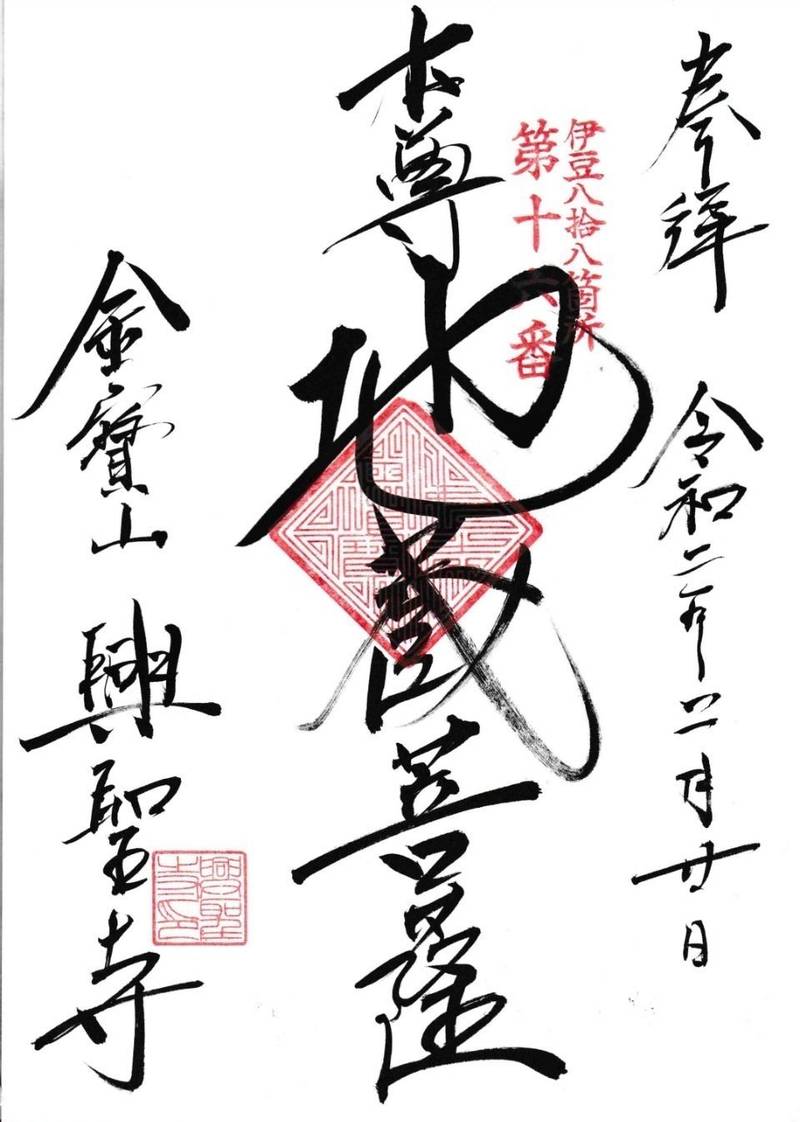 奉拝
令和二年 月廿日
伊豆八拾八箇所
第十六番
本尊地蔵菩薩
金寳山
興聖寺
興聖寺印